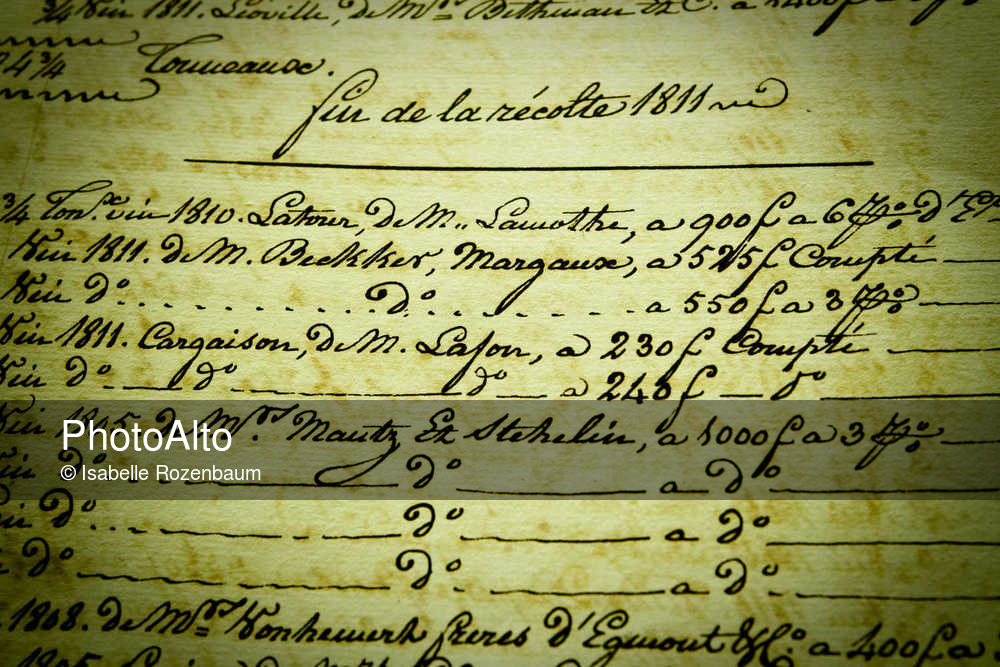 3/4 Vin 1811. Léoville, de M.rs Bethman Et C. a 1400 f a
24 3/4 Tonneaux.
fin de la récolte 1811
3/4 Ton.x vin 1810. Latour, de M.. Lamothe, a 900 f a 6 
Vin 1811. de M. Bekker, Margaux, a 525 f Compté
Vin d.o d.o a 550 f a 3
Vin 1811. Cargaison, de M. Lafon, a 230 f Compté
Vin d.o d.o d.o a 240 f d.o
Vin de M.rs Mautz Et Stehelin, a 1000 f a 3
d.o d.o a d.o
d.o d.o a d.o
d.o d.o a d.o
1808. de M.rs Vonhemert freres d'Egmont & C.o a 400 f a
PhotoAlto
© Isabelle Rozenbaum